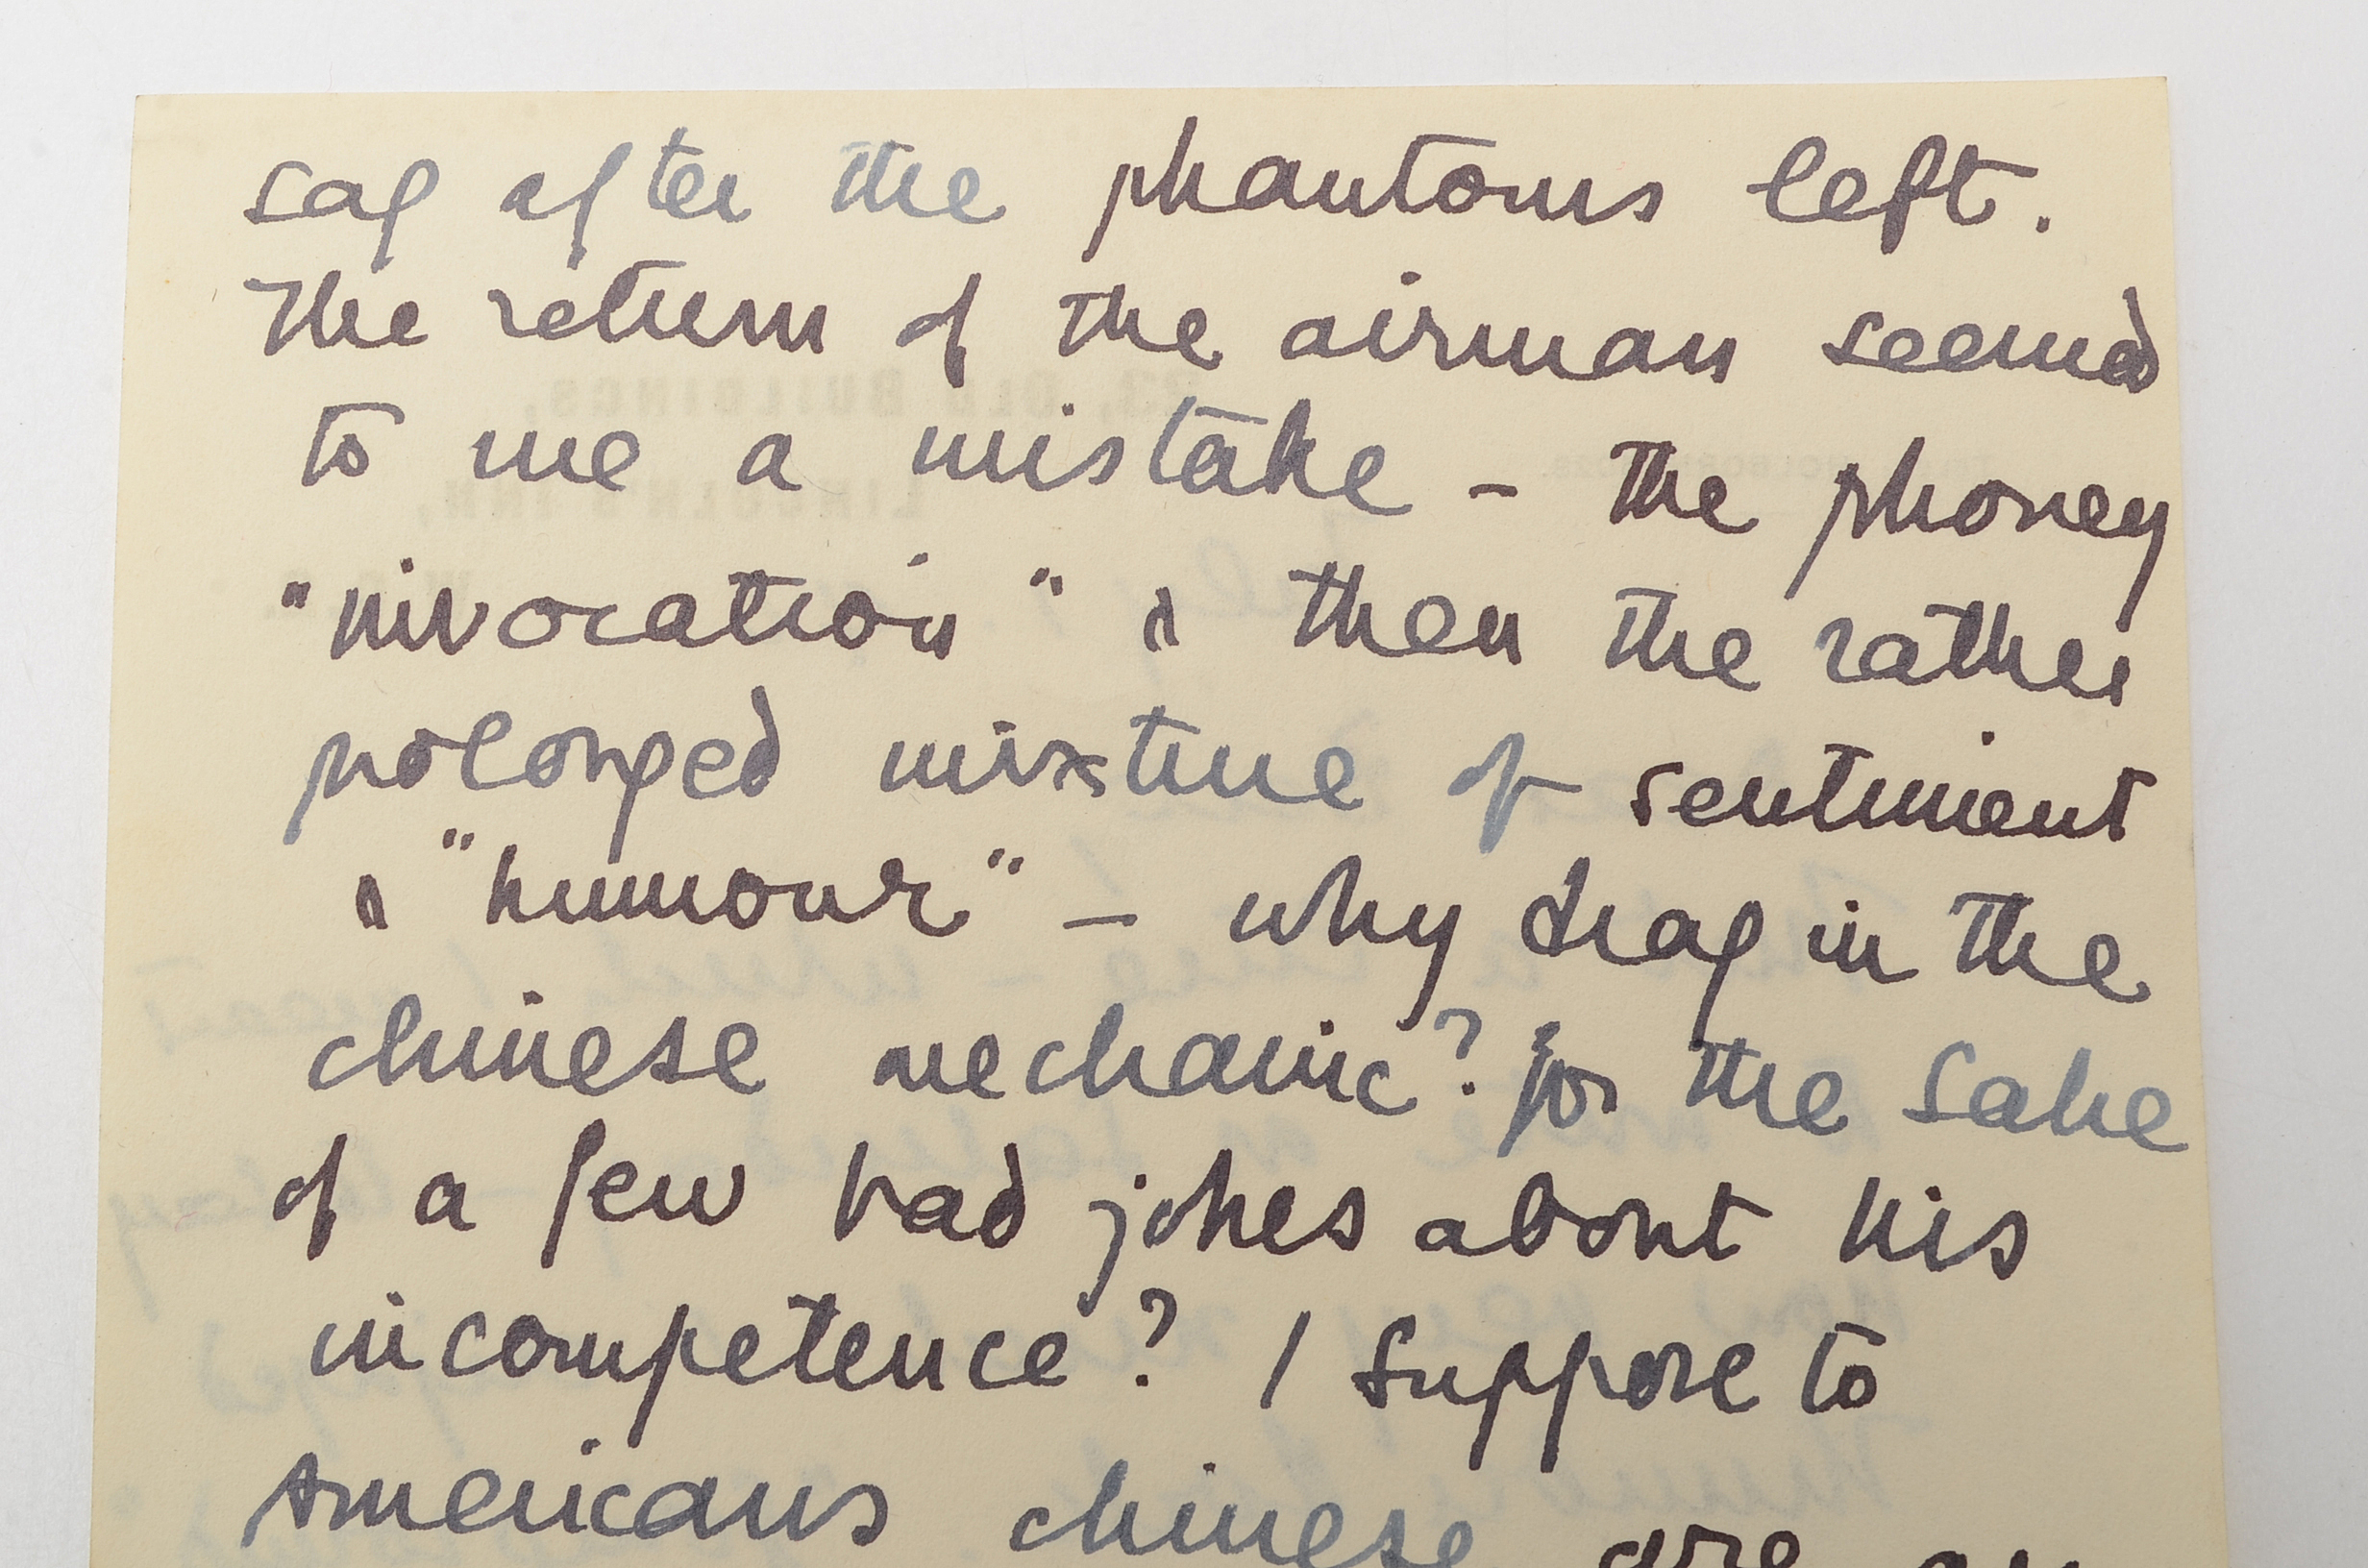 sag after the phantoms left.
The return of the airman seemed
to me a mistake - the phoney
"invocation" & then the rather
prolonged mixture of sentiment
& "humour" - why drag in the
chinese mechanic? for the sake
of a few bad jokes about his
incompetence? I suppose to
Americans chinese are